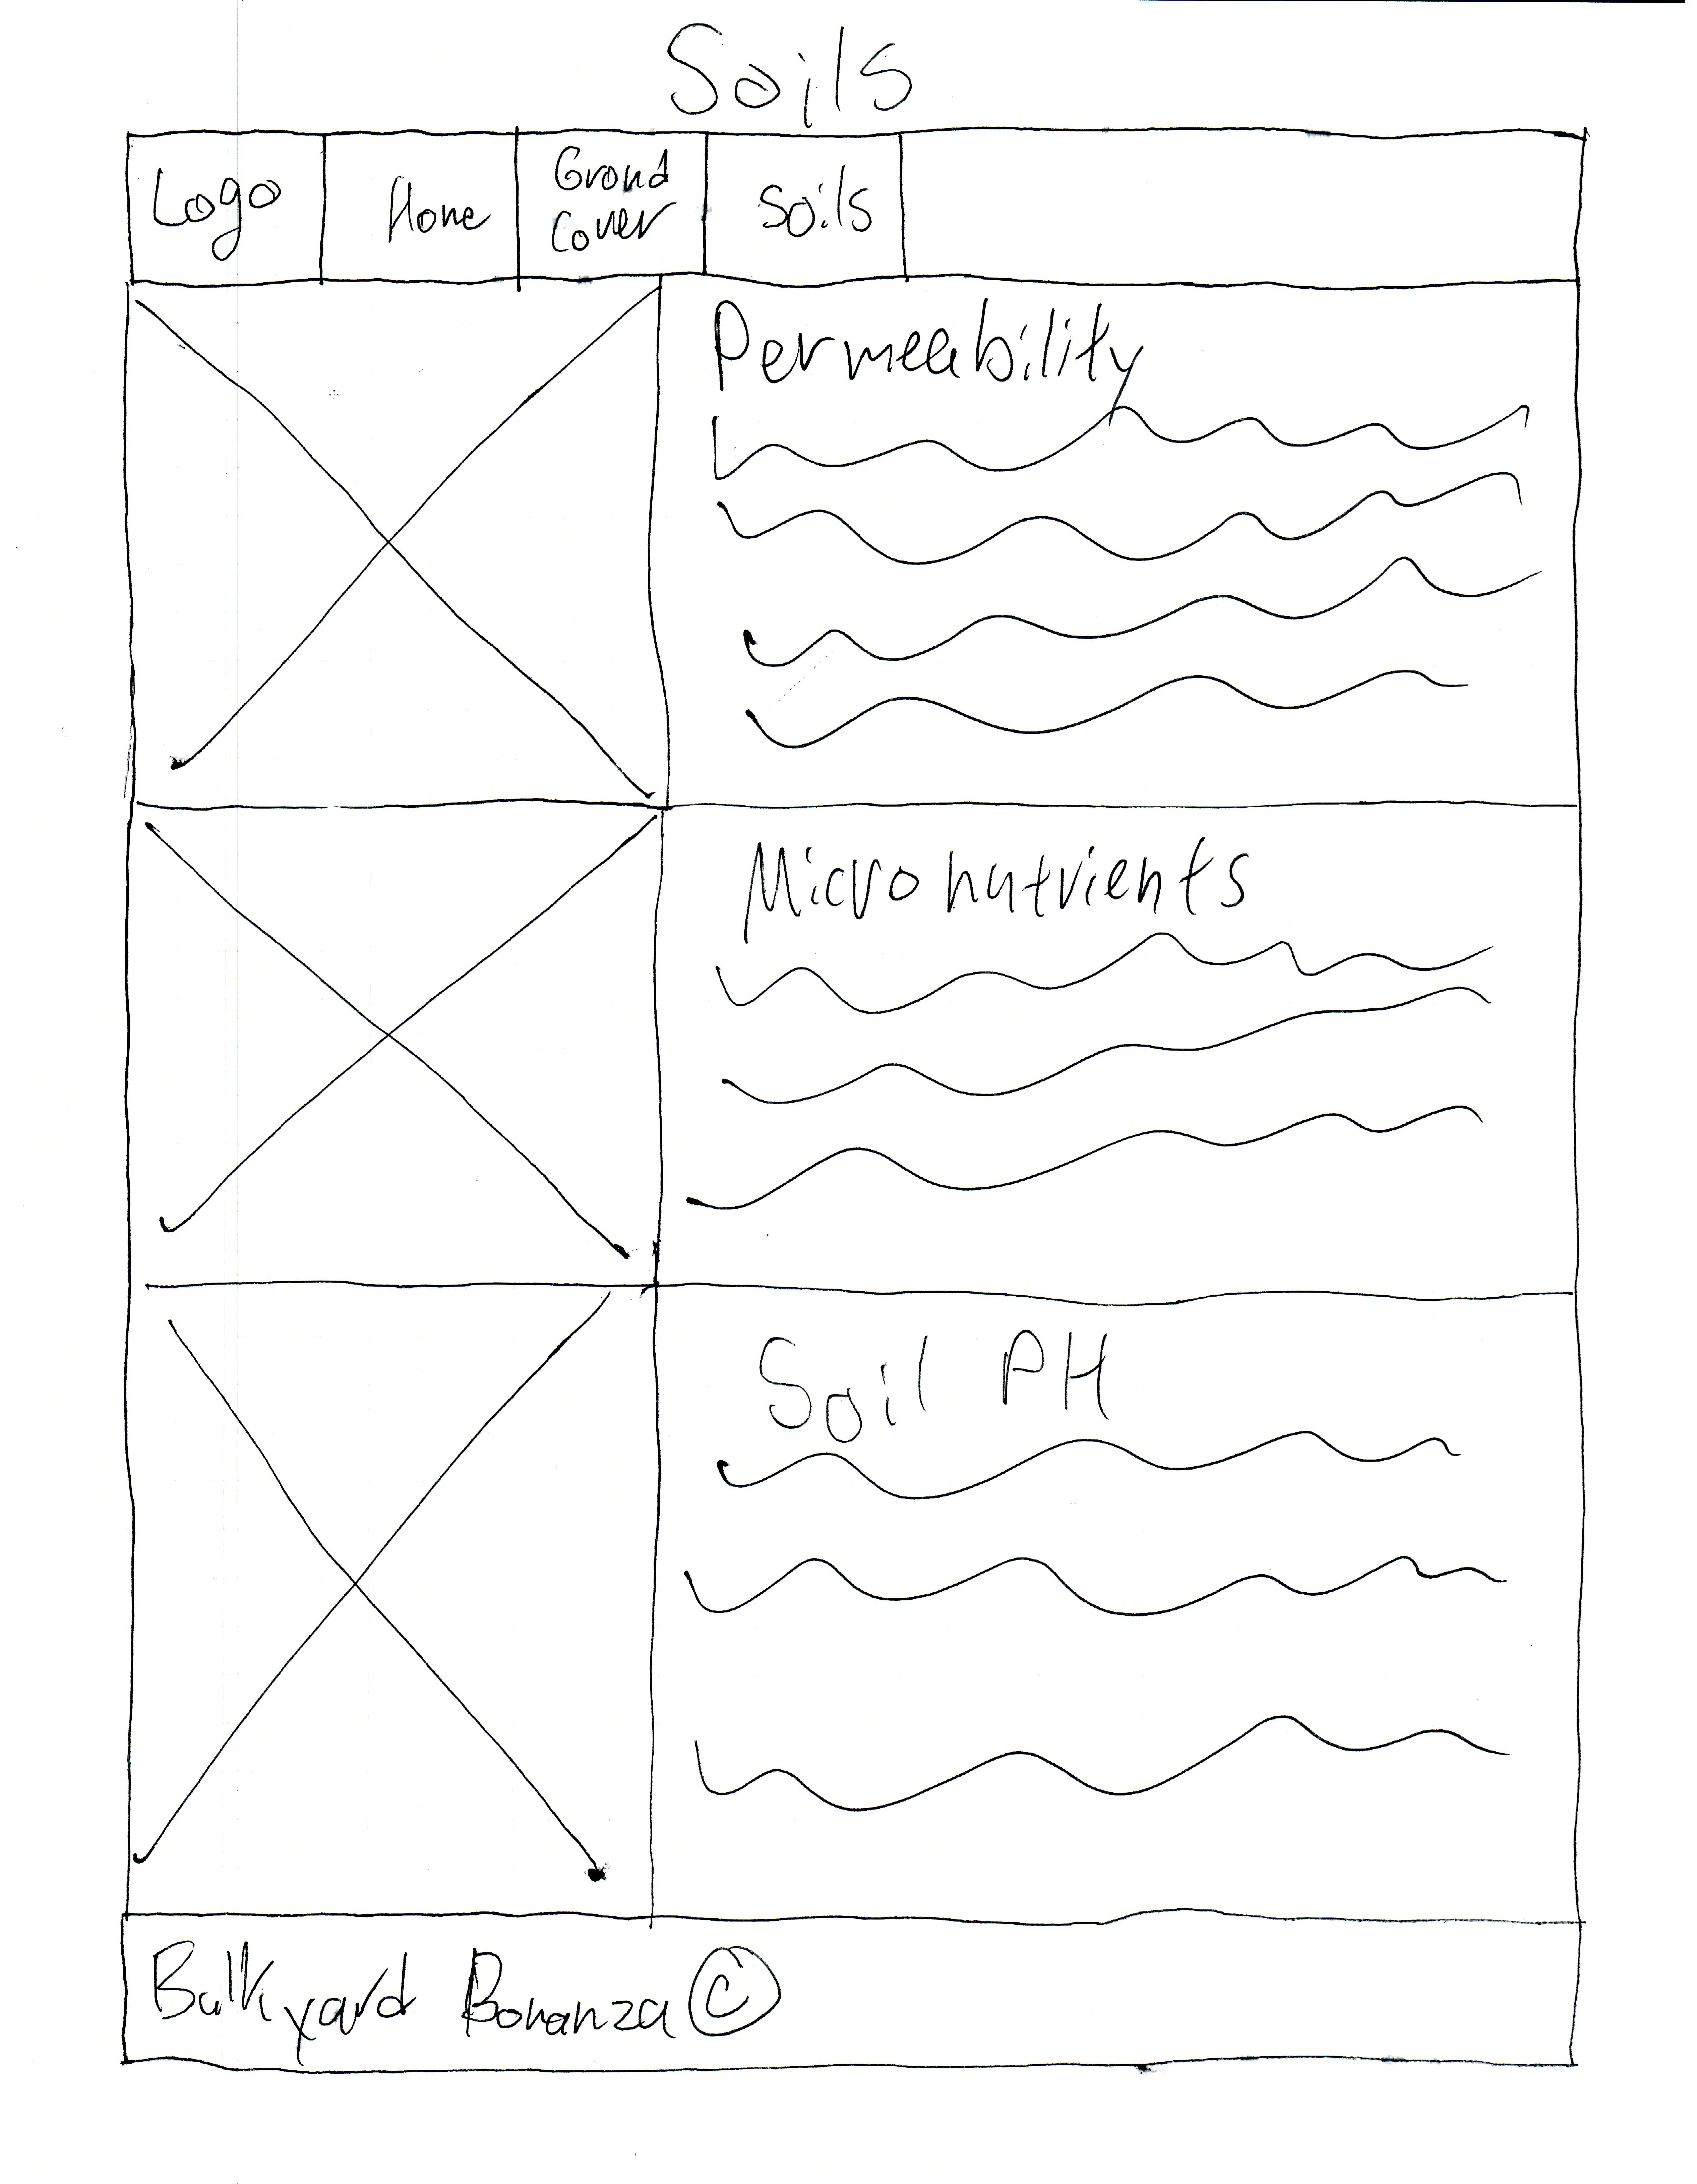 Soils
Logo
Home
Grond
Cover
Soils
Permeability
Micronutrients
Soil PH
Bulkyard Bonanza ©